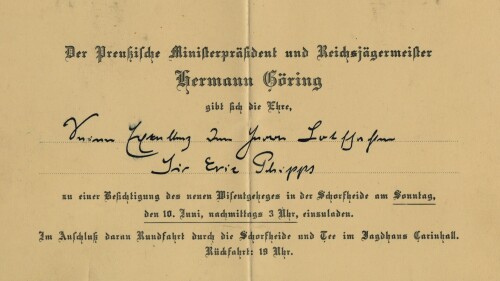 Der Preußische Ministerpräsident und Reichsjägermeister
Hermann Göring
gibt sich die Ehre,
Seine Exzellenz den Herrn Botschafter
Sir Eric Phipps
zu einer Besichtigung des neuen Wisentgeheges in der Schorfheide am Sonntag,
den 10. Juni, nachmittags 3 Uhr, einzuladen.
Im Anschluß daran Rundfahrt durch die Schorfheide und Tee im Jagdhaus Carinhall.
Rückfahrt: 19 Uhr.